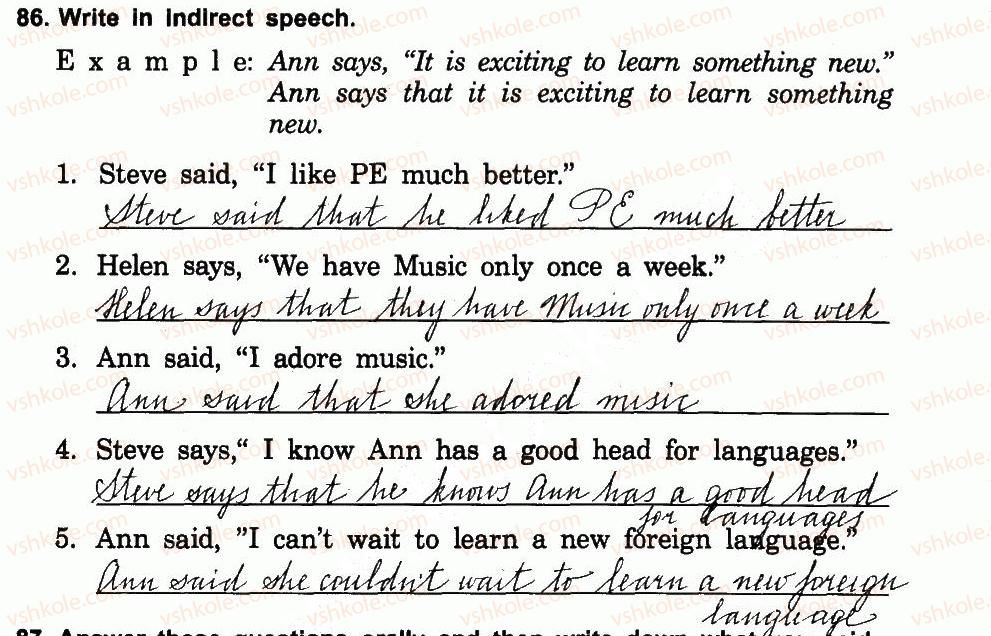 86. Write in indirect speech.
E x a m p l e: Ann says, “It is exciting to learn something new.”
Ann says that it is exciting to learn something
new.
1. Steve said, “I like PE much better.”
Steve said that he liked PE much better
2. Helen says, “We have Music only once a week.”
Helen says that they have Music only once a week
3. Ann said, “I adore music.”
Ann said that she adored music
4. Steve says,“ I know Ann has a good head for languages.”
Steve says that he knows Ann has a good head
for languages
5. Ann said, ”I can't wait to learn a new foreign language.”
Ann said she couldn't wait to learn a new foreign
language
87. Answer these questions orally and then write down what you said